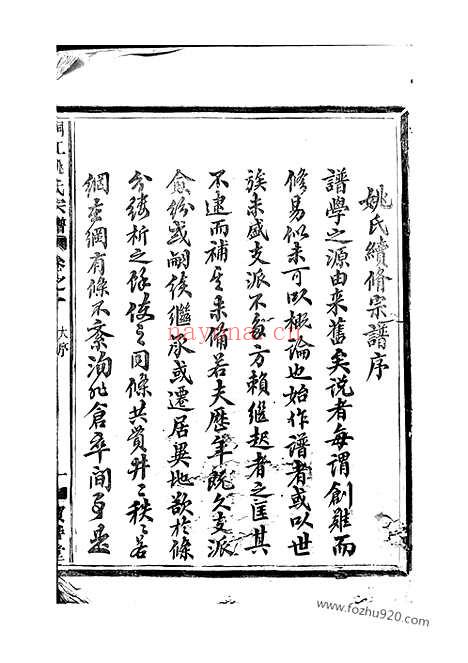 姚氏續脩宗譜序
譜學之源由來舊矣說者每謂創難而
修易似未可以概論也始作譜者或以世
族未盛支派不多方賴繼起者之匡其
不逮而補其未備若夫歷年既久支派
愈紛或嗣續繼承或遷居異地欲於條
分縷析之餘使之同條共貫井々秩々若
網在綱有條不紊洵非倉卒間事是
氏宗譜
卷之一
序
nayona.cn
www.fozhu920.com